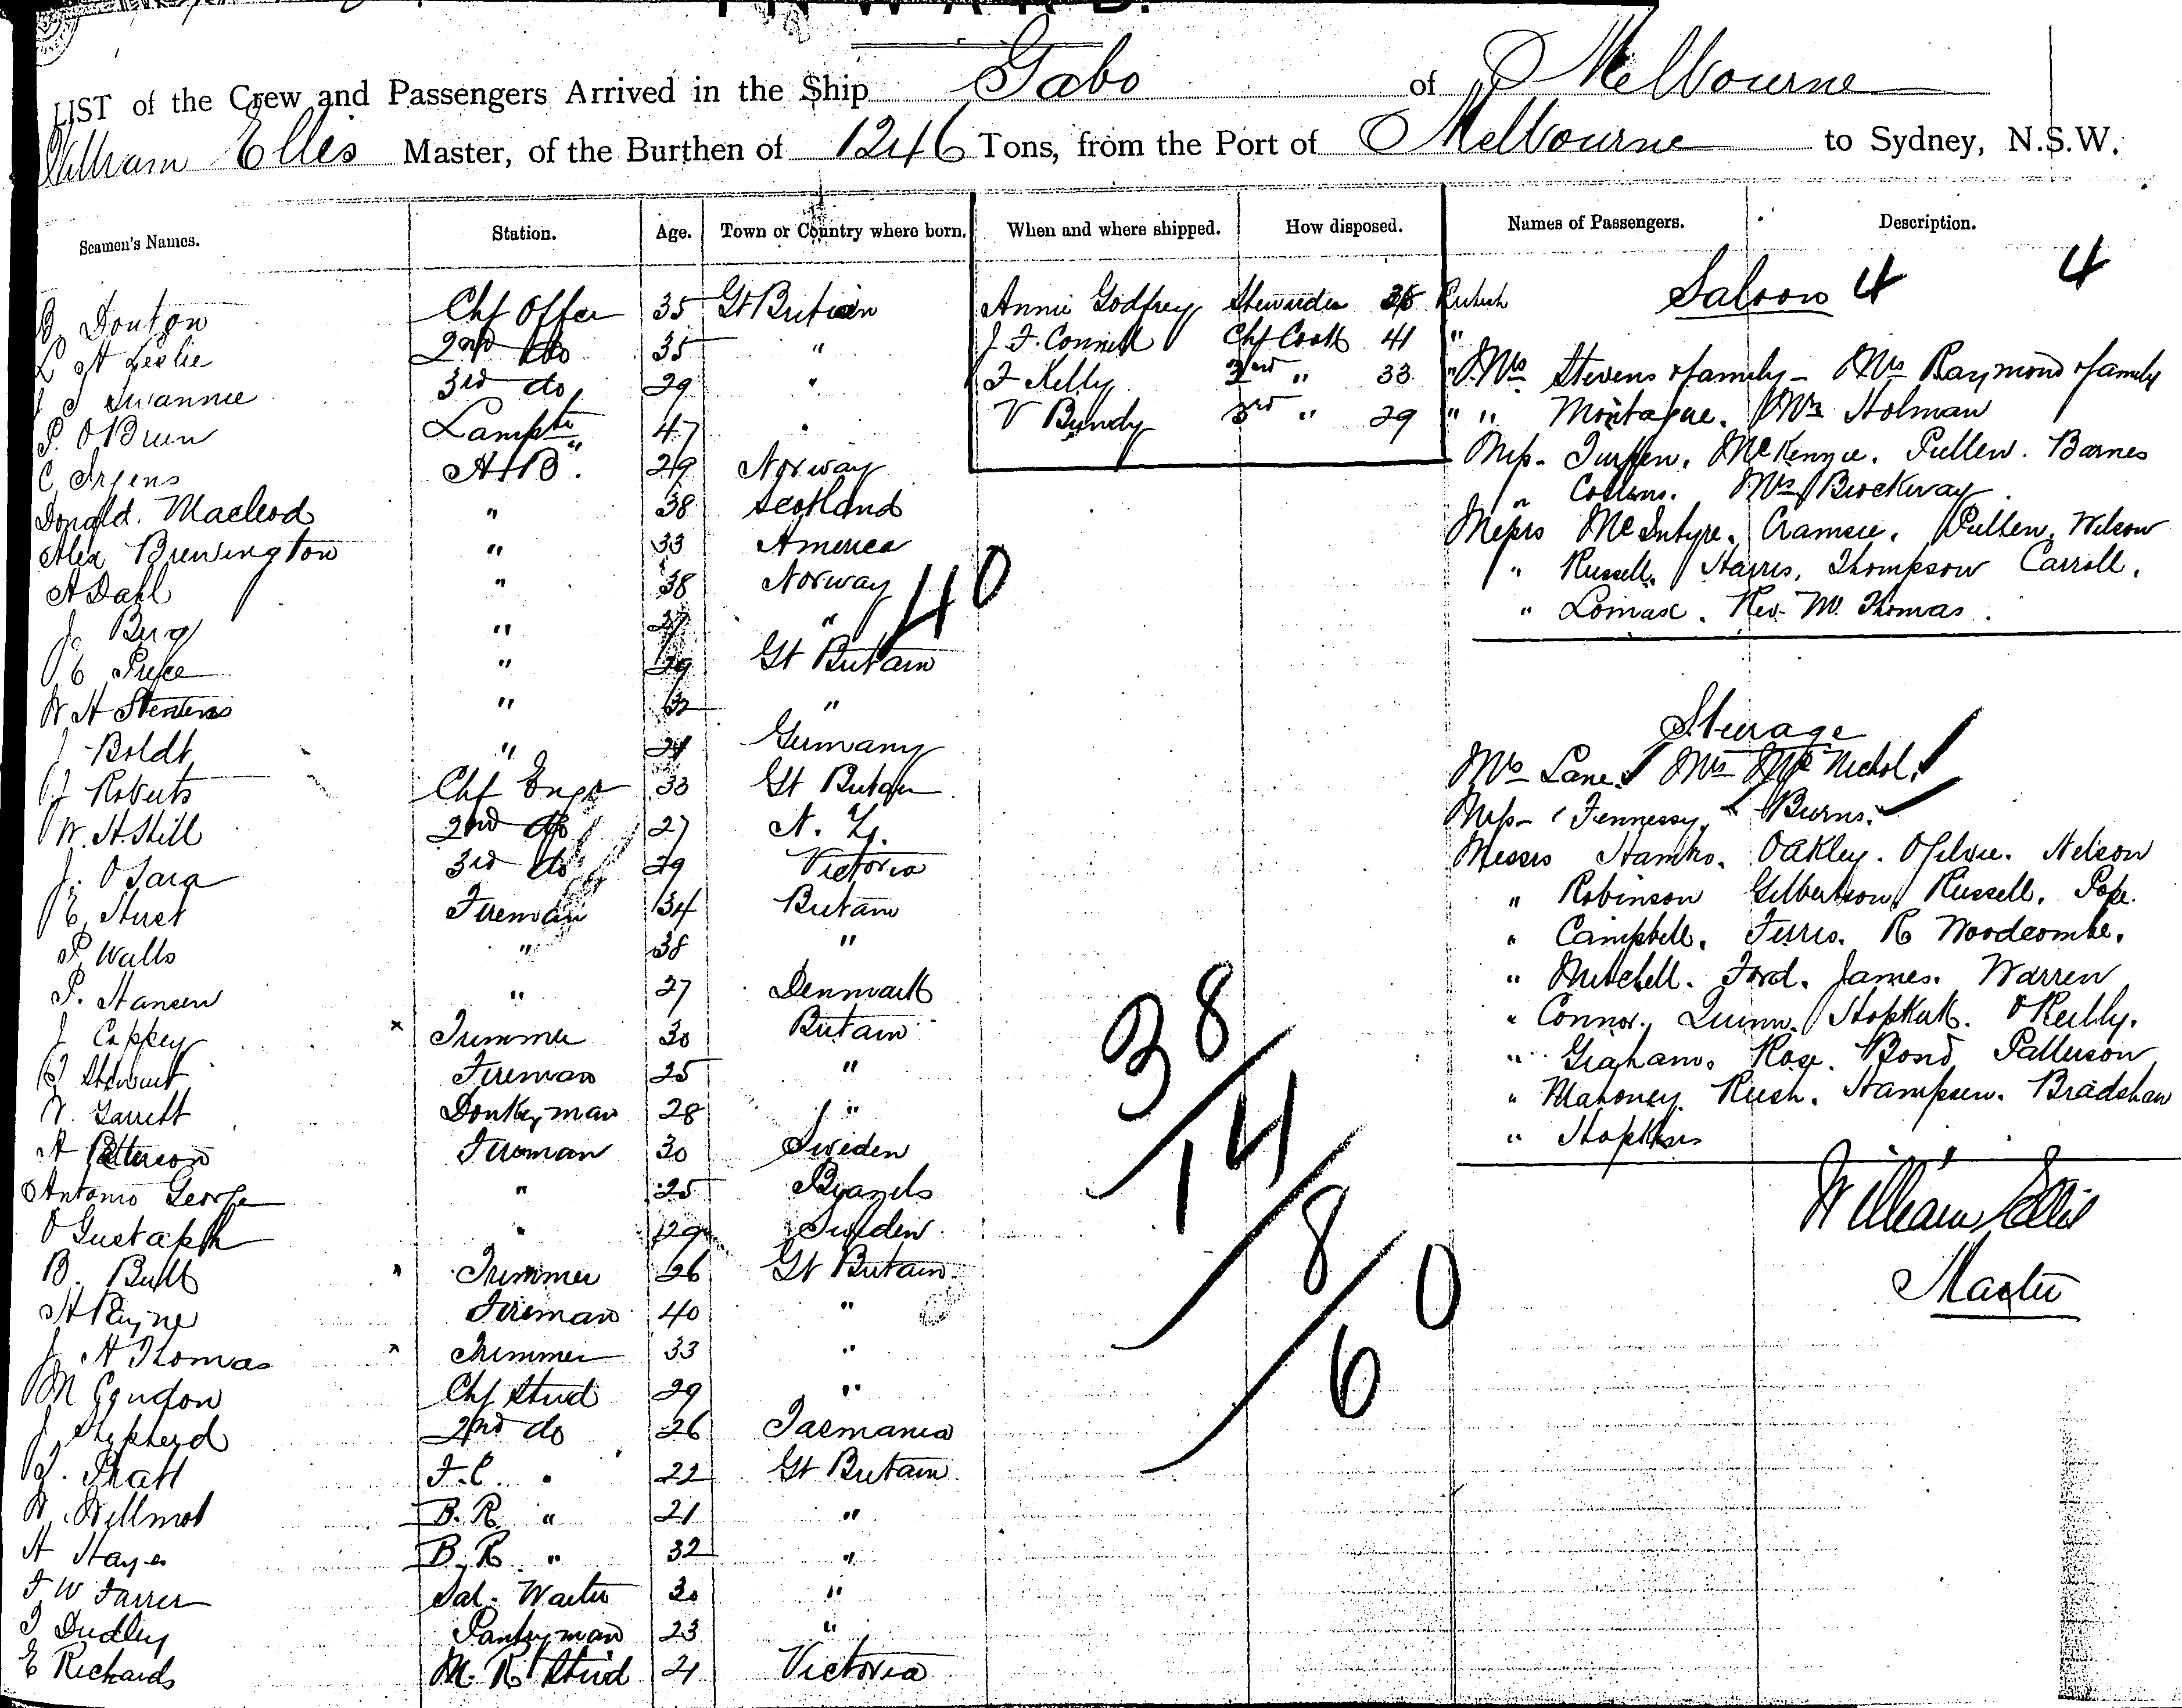 LIST of the Crew and Passengers Arrived in the Ship Gabo of Melbourne
William Ellis Master, of the Burthen of 1246 Tons, from the Port of Melbourne to Sydney, N.S.W.
Seamen's Names. Station. Age. Town or Country where born. When and where shipped. How disposed. Names of Passengers. Description.
Saloon 4 4
B Donton Chf Offer 35 Gt Britain Annie Godfrey Stewardess 35 British
L A Leslie 2nd do 35 " J. F. Connell Chf Cook 41 "
3rd do 29 " F Kelly 2nd " 33 " Mrs Stevens & family - Mrs Raymond & family
P. O'Brien Lampts 47 " V Bundy 3rd " 29 " " Montague. Mrs Holman
C Irgens A.B. 29 Norway Miss McKenzie. Pullen. Barnes
Donald Macleod " 38 Scotland " Collins. Mrs Brockway
Alex Brewington " 33 America Messrs McIntyre. Cramsie. Pullen. Wilson
A Dahl " 38 Norway 40 " Russell. Harris. Thompson Carroll.
J. Berg " 27 " " Lomax. Rev. W. Thomas.
" 29 Gt Britain
W H Stevens " 32 "
Steerage
J Boldt " 24 Germany Mrs Lane. Mrs McNichol.
J Roberts Chf Engr 33 Gt Britain Miss Fennessy. Burns.
W. H. Hill 2nd do 27 N. Z. Messrs Oakley. Ogilvie. Nelson
J. O'Gara 3rd do 29 Victoria " Robinson Gilbertson Russell. Pope.
E Hurst Fireman 34 Britain " Campbell. Ferris. R Woodcombe.
P Walls " 38 " " Mitchell. Ford. James. Warren
P. Hansen " 27 Denmark " Connor. Quinn. O'Reilly.
J Coppey x Trimmer 30 Britain 38 " Graham. Rose. Bond Patterson
Stewart Fireman 25 " " Mahoney. Rush. Hampson. Bradshaw
W. Garrett Donkeyman 28 " " Hopkins
A Petterson Fireman 30 Sweden 14
Antonio George " 25 Brazils William Ellis
O Gustaph " 29 Sweden 8
B. Bull x Trimmer 26 Gt Britain 0 Master
H Payne Fireman 40 "
J. H Thomas x Trimmer 33 " 6
M Condon Chf Stwd 29 "
J Shepherd 2nd do 26 Tasmania
J. Pratt F.C. " 22 Gt Britain
W. Willmot B. R. " 21 "
H Hayes B. R. " 32 "
F W Farrer Sal. Waiter 30 "
J Dudley Pantryman 23 "
E Richards M. R Stwd 21 Victoria